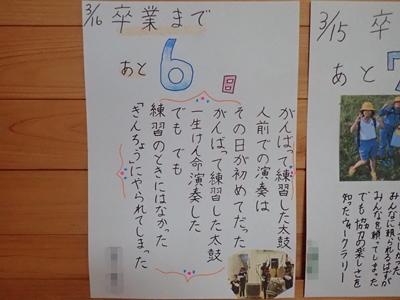 3/16 卒業まで
あと 6 回
がんばって練習した太鼓
人前での演奏は
その日が初めてだった
がんばって練習した太鼓
一生けん命演奏した
でも でも
練習のときにはなかった
「きんちょう」にやられてしまった
3/15 卒
あと 7
みんなに頼られるはずが
みんなを頼ってしまった
でも協力の楽しさを
知ったウォークラリー